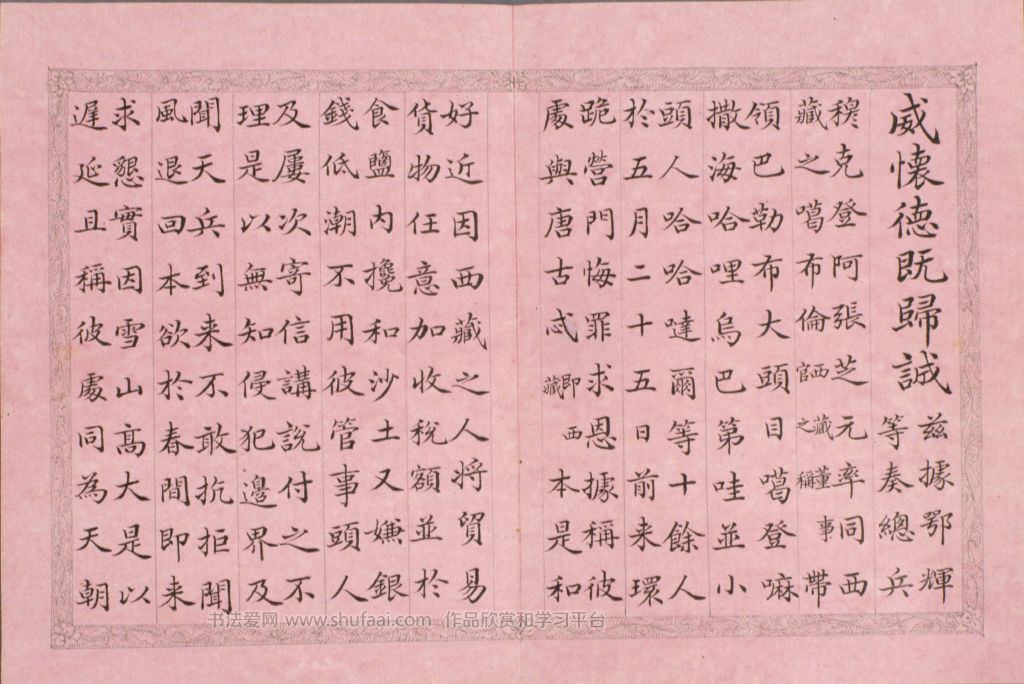 威懷德既歸誠
兹據鄂輝
等奏總兵
穆克登阿張芝元率同西
藏之噶布倫西藏董事官之稱帶
領巴勒布大頭目噶登嘛
撒海哈哩烏巴第哇並小
頭人哈哈噠爾等十餘人
於五月二十五日前来環
跪營門悔罪求恩據稱彼
處與唐古忒即西藏本是和
好近因西藏之人将貿易
貨物任意加收稅額並於
食鹽内攙和沙土又嫌銀
錢低潮不用彼管事頭人
及屢次寄信講說付之不
理是以無知侵犯邊界及
聞天兵到来不敢抗拒聞
風退回本欲於春間即来
求懇實因雪山髙大是以
遲延且稱彼處同為天朝
书法爱网 www.shufaai.com 作品欣赏和学习平台